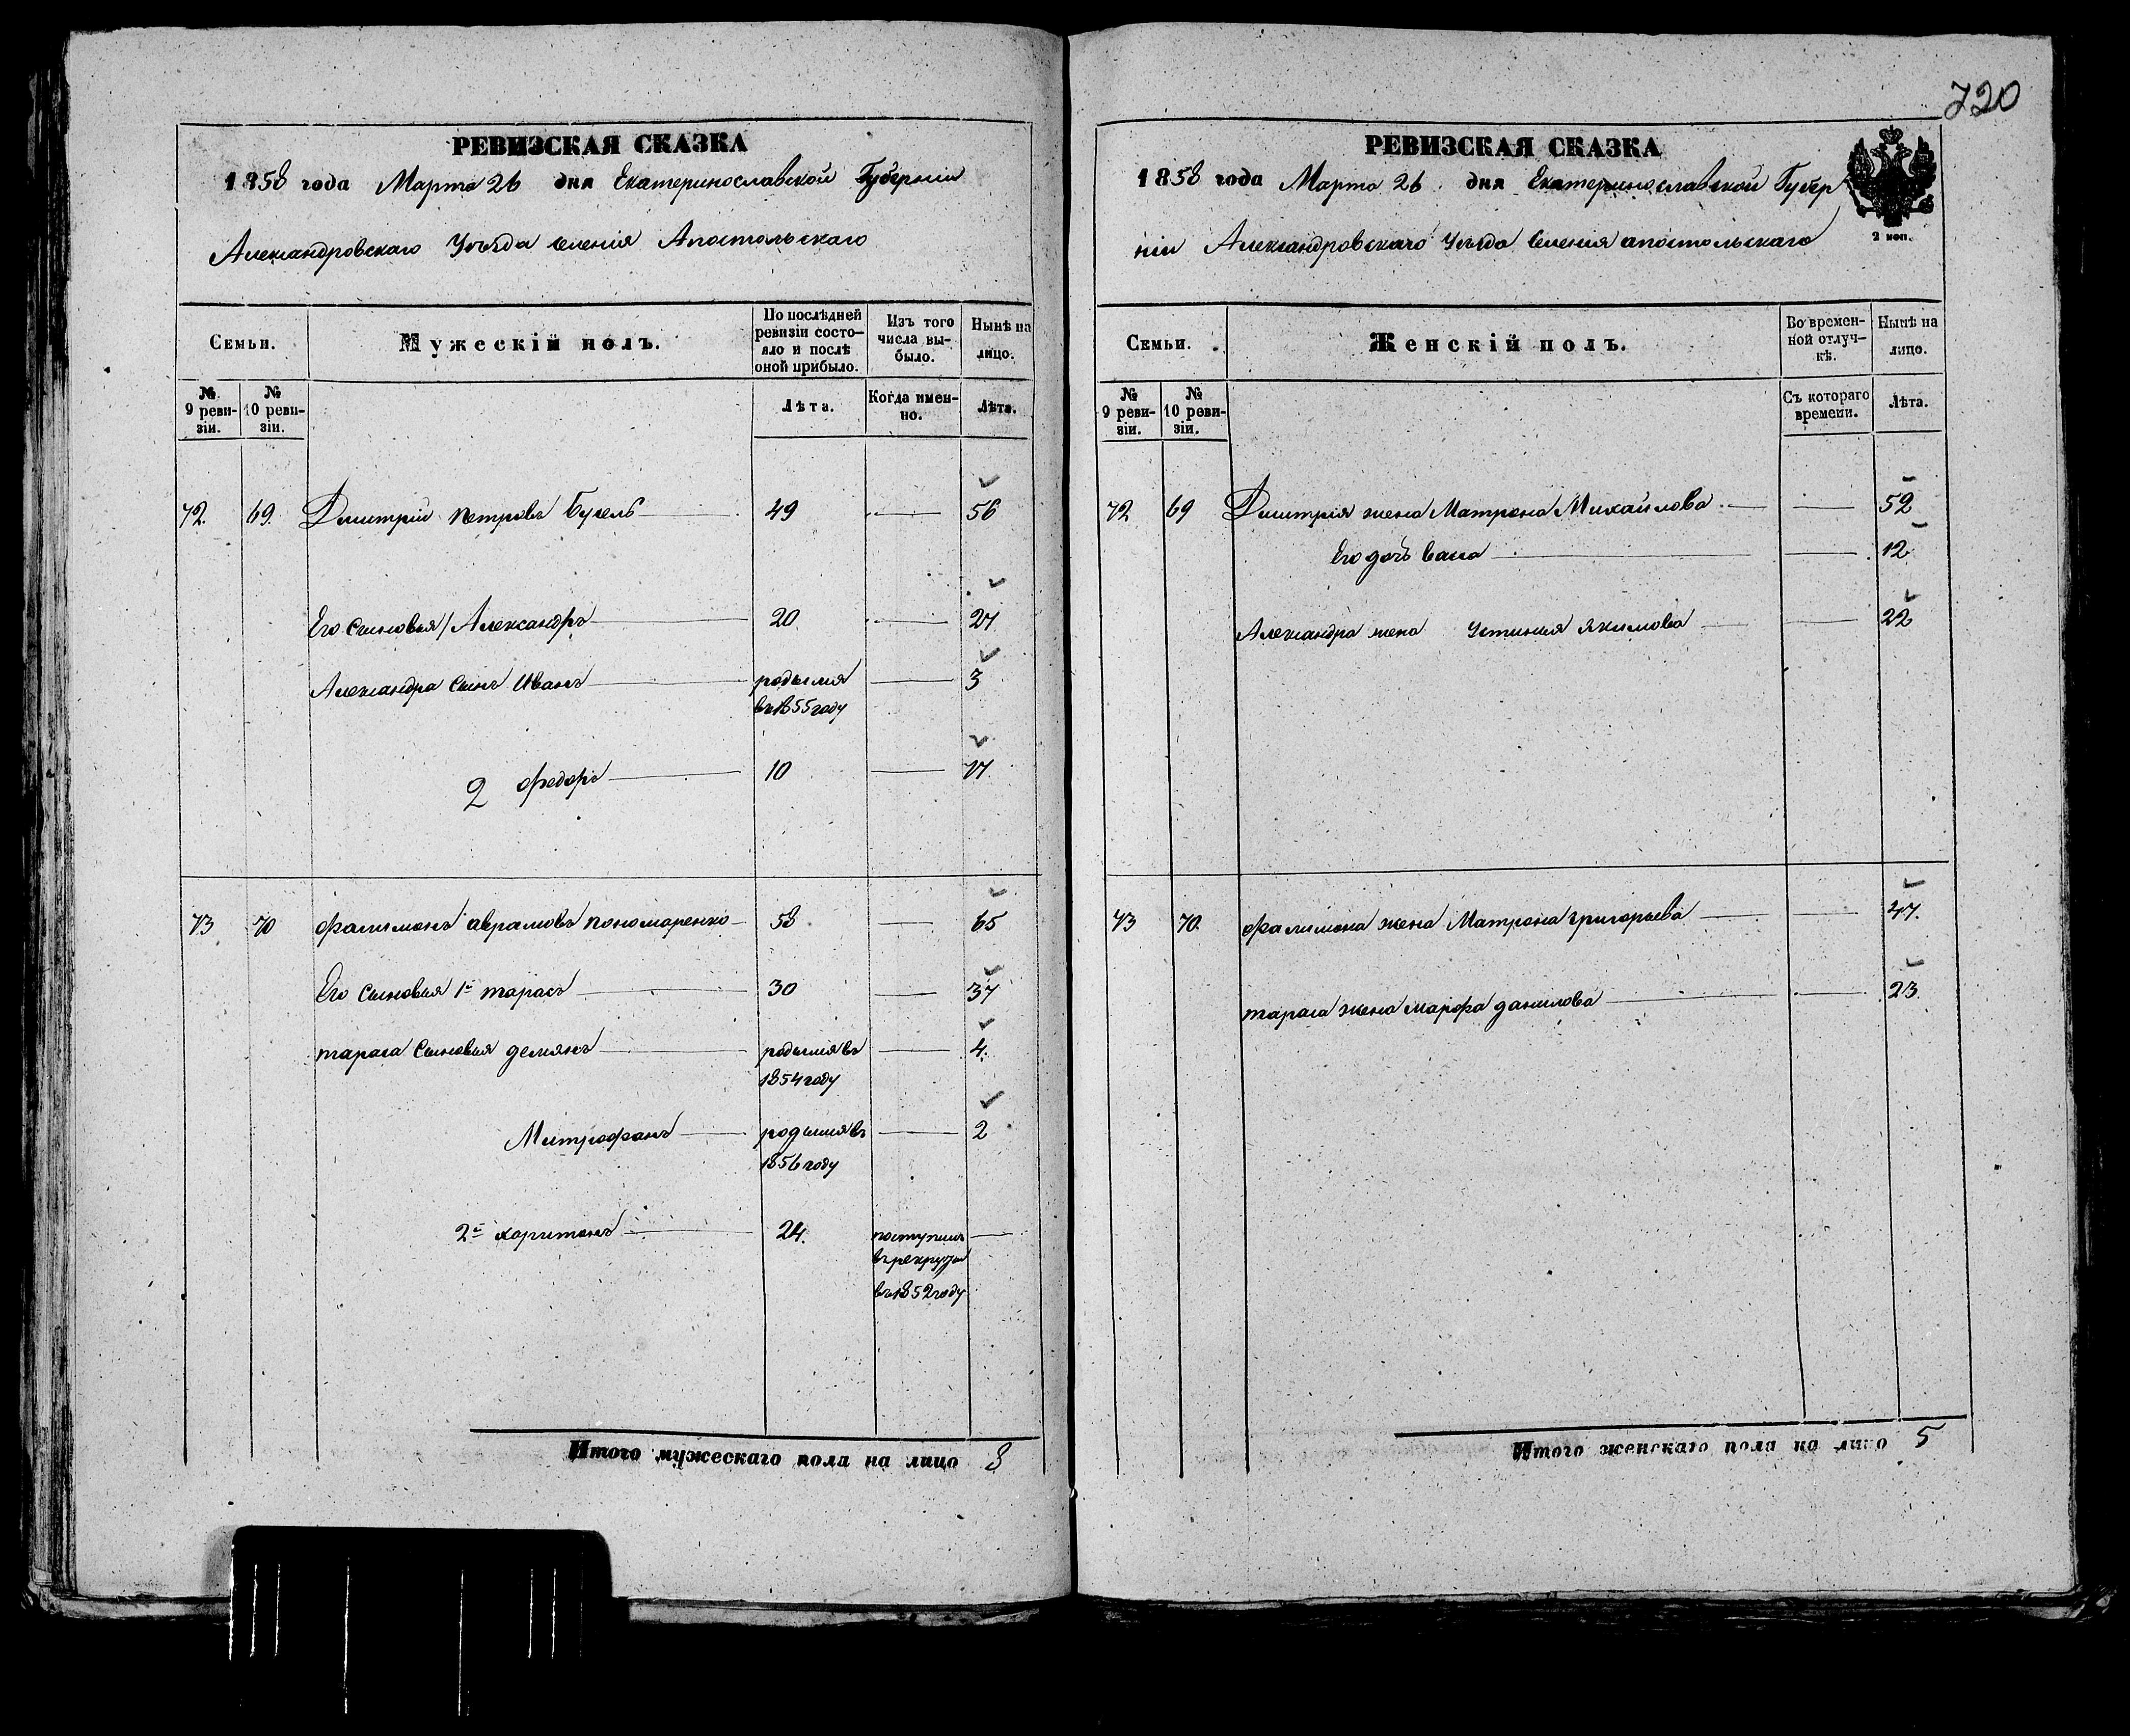 720
РЕВИЗСКАЯ СКАЗКА
1858 года Марта 26 дня Екатеринославской Губернии
Александровскаго Уѣзда селенія Апостольскаго
Семьи.
Мужескій полъ.
По послѣдней ревизіи состояло и послѣ оной прибыло.
Изъ того числа выбыло.
Нынѣ на лицо.
№ 9 ревизіи.
№ 10 ревизіи.
Лѣта.
Когда именно.
Лѣта.
72. 69. Дмитрій Петровъ Бугель 49 56
Его сыновья / Александръ 20 27
Александра сынъ Иванъ родился въ 1855 году 3
2 Федоръ 10 17
73 70 Фалимонъ Аврамовъ Пономаренко 58 65
Его сыновья 1й Тарасъ 30 37
Тараса сыновья Демянъ родился въ 1854 году 4
Митрофанъ родился въ 1856 году 2
2й Харитонъ 24. поступилъ въ рекруты въ 1852 году
Итого мужескаго пола на лицо 8
РЕВИЗСКАЯ СКАЗКА
1858 года Марта 26 дня Екатеринославской Губер
ніи Александровскаго Уѣзда селенія апостольскаго
2 коп.
Семьи.
Женскій полъ.
Во временной отлучкѣ.
Нынѣ на лицо.
№ 9 ревизіи.
№ 10 ревизіи.
Съ котораго времени.
Лѣта.
72 69 Дмитрія жена Матрона Михайлова 52
Его дочь Васса 12
Александра жена Устинья Якимова 22
73 70. Фалимона жена Матрона Григорьева 47.
Тараса жена Марфа Данилова 23.
Итого женскаго пола на лицо 5